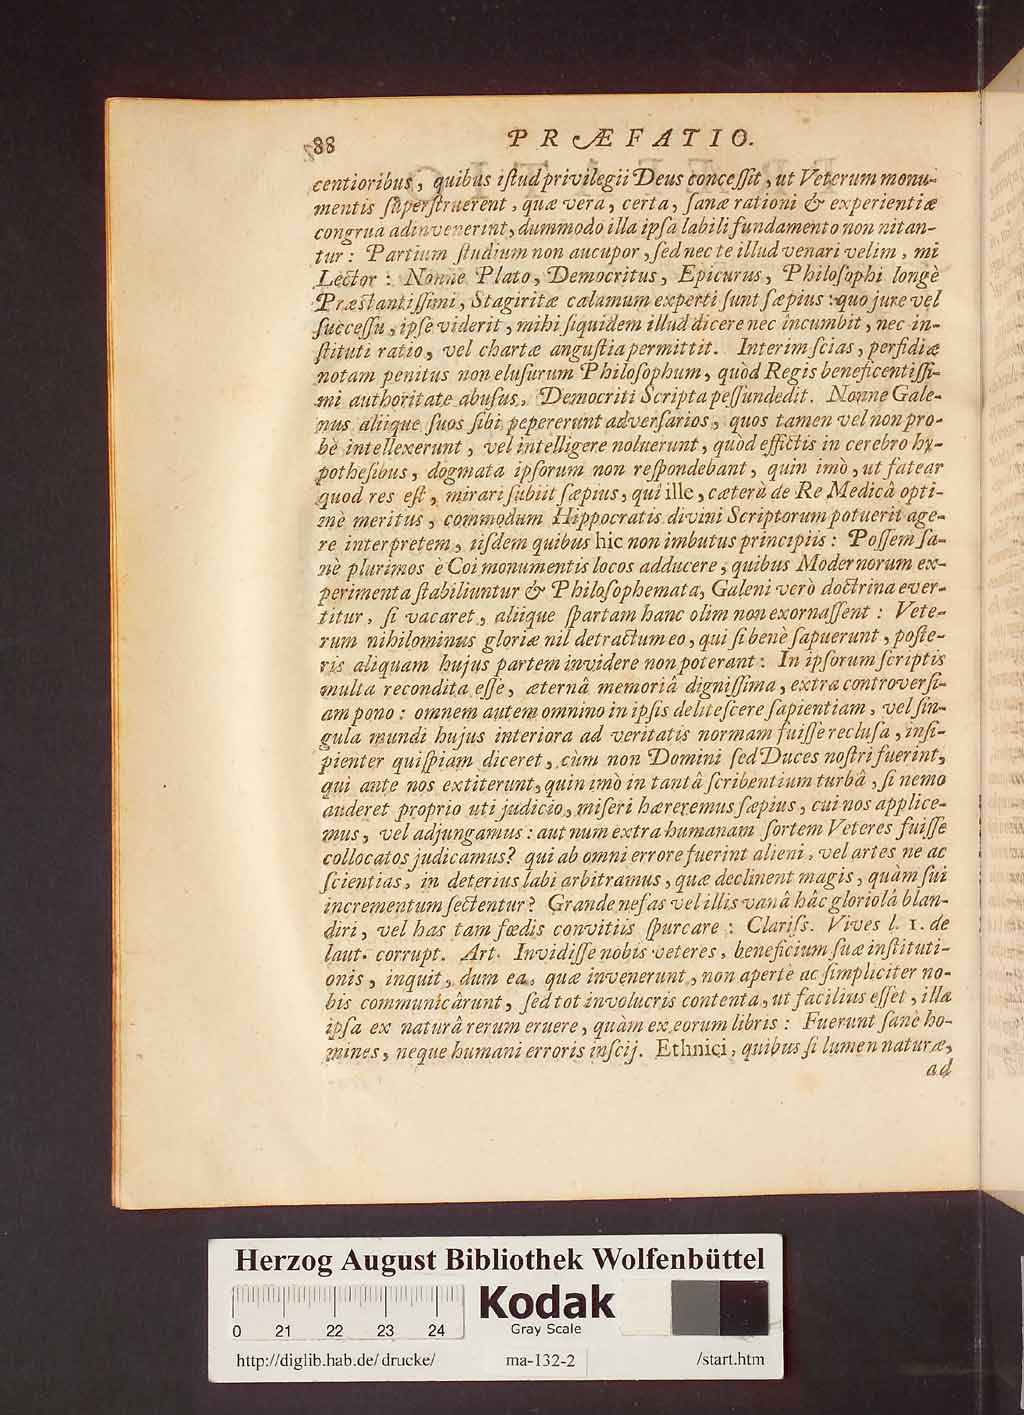 88 PRÆFATIO.
centioribus, quibus iſtud privilegii Deus conceſſit, ut Veterum monu-
mentis ſuperſtruerent, quæ vera, certa, ſanæ rationi & experientiæ
congrua adinvenerint, dummodo illa ipſa labili fundamento non nitan-
tur: Partium ſtudium non aucupor, ſed nec te illud venari velim, mi
Lector: Nonne Plato, Democritus, Epicurus, Philoſophi longè
Præstantiſſimi, Stagiritæ calamum experti ſunt ſæpius: quo jure vel
ſucceſſu, ipſe viderit, mihi ſiquidem illud dicere nec incumbit, nec in-
ſtituti ratio, vel chartæ anguſtia permittit. Interim ſcias, perfidiæ
notam penitus non eluſurum Philoſophum, quòd Regis beneficentiſſi-
mi authoritate abuſus, Democriti Scripta peſſundedit. Nonne Gale-
nus aliique ſuos ſibi pepererunt adverſarios, quos tamen vel non pro-
bè intellexerunt, vel intelligere noluerunt, quòd effictis in cerebro hy-
potheſibus, dogmata ipſorum non reſpondebant, quin imò, ut fatear
quod res eſt, mirari ſubiit ſæpius, quî ille, cæterà de Re Medicâ opti-
mè meritus, commodum Hippocratis divini Scriptorum potuerit age-
re interpretem, iiſdem quibus hic non imbutus principiis: Poſſem ſa-
nè plurimos è Coi monumentis locos adducere, quibus Modernorum ex-
perimenta ſtabiliuntur & Philoſophemata, Galeni verò doctrina ever-
titur, ſi vacaret, aliique ſpartam hanc olim non exornaſſent: Vete-
rum nihilominus gloriæ nil detractum eo, qui ſi benè ſapuerunt, poſte-
ris aliquam hujus partem invidere non poterant: In ipſorum ſcriptis
multa recondita eſſe, æternâ memoriâ digniſſima, extra controverſi-
am pono: omnem autem omnino in ipſis delitescere ſapientiam, vel ſin-
gula mundi hujus interiora ad veritatis normam fuiſſe recluſa, inſi-
pienter quiſpiam diceret, cùm non Domini ſed Duces noſtri fuerint,
qui ante nos extiterunt, quin imò in tantâ ſcribentium turbâ, ſi nemo
auderet proprio uti judicio, miſeri hæreremus ſæpius, cui nos applice-
mus, vel adjungamus: aut num extra humanam ſortem Veteres fuiſſe
collocatos judicamus? qui ab omni errore fuerint alieni, vel artes ne ac
ſcientias, in deterius labi arbitramus, quæ declinent magis, quàm ſui
incrementum ſectentur? Grande nefas vel illis vanâ hâc gloriolâ blan-
diri, vel has tam fœdis convitiis ſpurcare: Clariſs. Vives l. 1. de
laut. corrupt. Art. Invidiſſe nobis veteres, beneficium ſuæ inſtituti-
onis, inquit, dum ea, quæ invenerunt, non apertè ac ſimpliciter no-
bis communicârunt, ſed tot involucris contenta, ut facilius eſſet, illa
ipſa ex naturâ rerum eruere, quàm ex eorum libris: Fuerunt ſanè ho-
mines, neque humani erroris inſcij. Ethnici, quibus ſi lumen naturæ,
ad
Herzog August Bibliothek Wolfenbüttel
0 21 22 23 24
Kodak
Gray Scale
http://diglib.hab.de/drucke/ ma-132-2 /start.htm